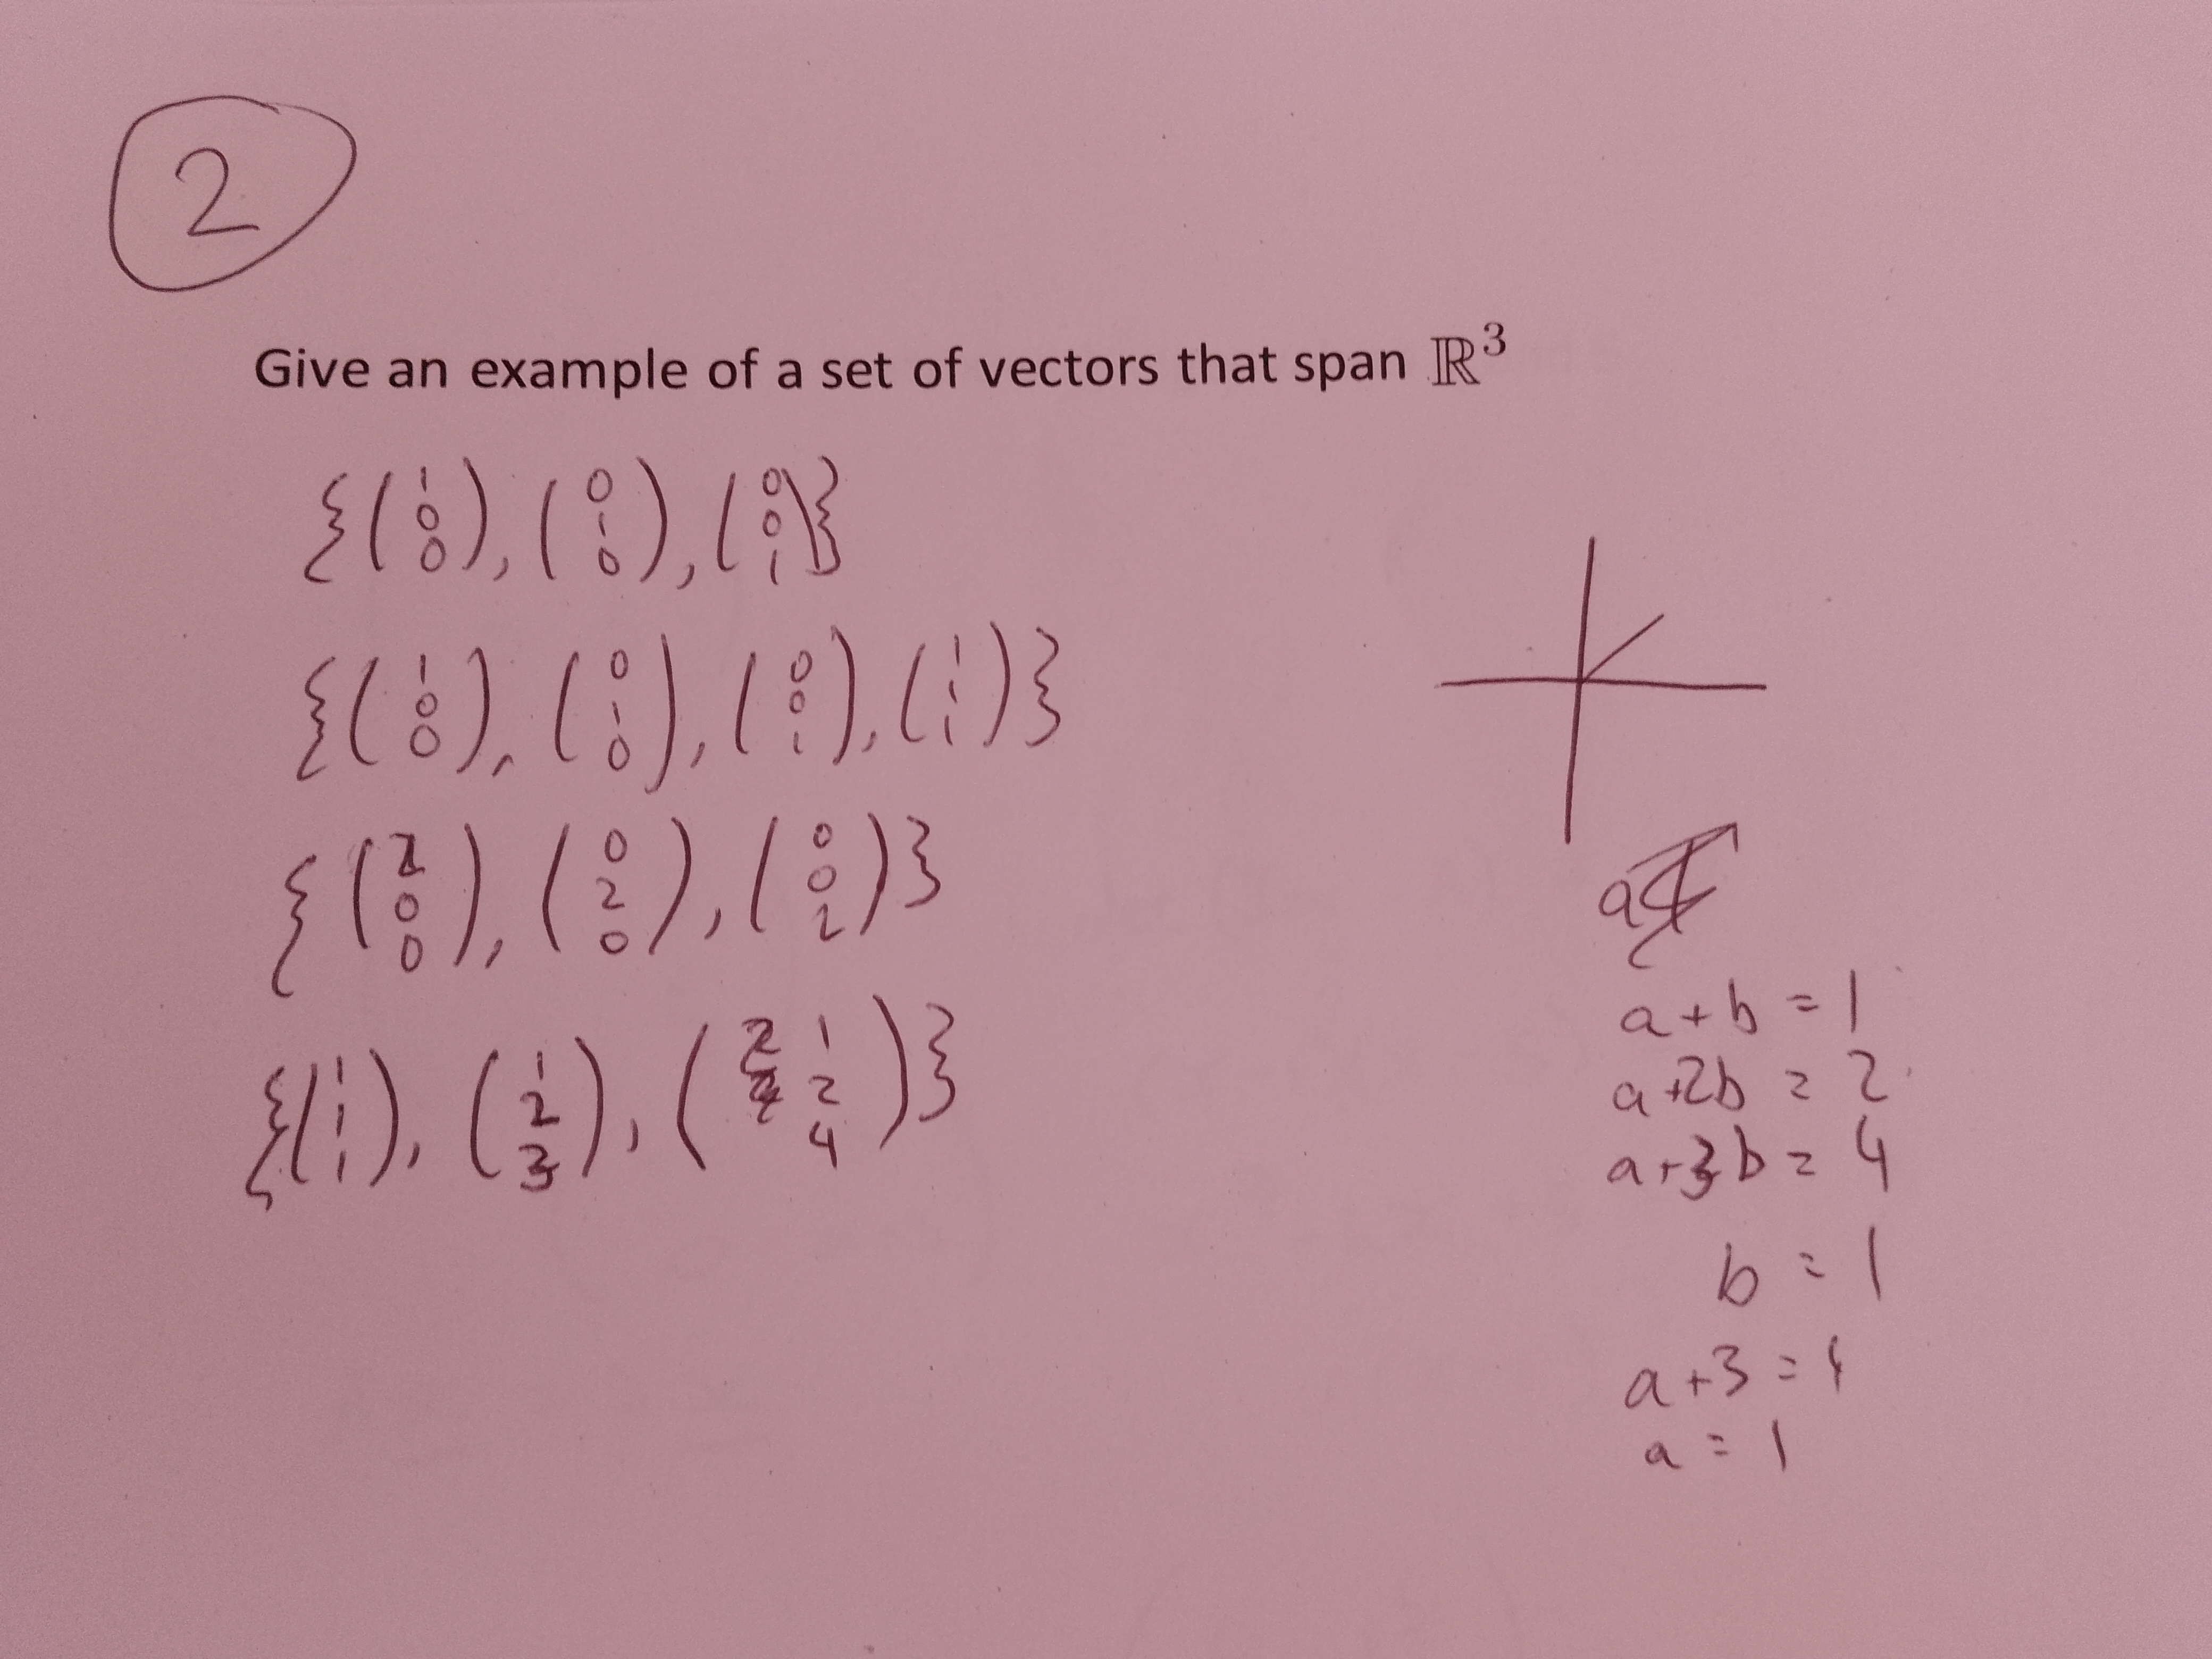 2
Give an example of a set of vectors that span ℝ³
{(1 0 0), (0 1 0), (0 0 1)}
{(1 0 0), (0 1 0), (0 0 1), (1 1 1)}
{(2 0 0), (0 2 0), (0 0 2)}
{(1 1 1), (1 2 3), (1 2 4)}
a
a + b = 1
a + 2b = 2
a + 3b = 4
b = 1
a + 3 = 4
a = 1